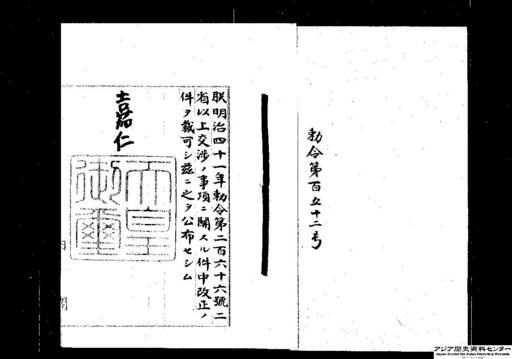 勅令第百五十二号
朕明治四十一年勅令第二百六十六號二
省以上交渉ノ事項ニ關スル件中改正ノ
件ヲ裁可シ茲ニ之ヲ公布セシム
嘉仁
天皇
御璽
アジア歴史資料センター
Japan Center for Asian Historical Records